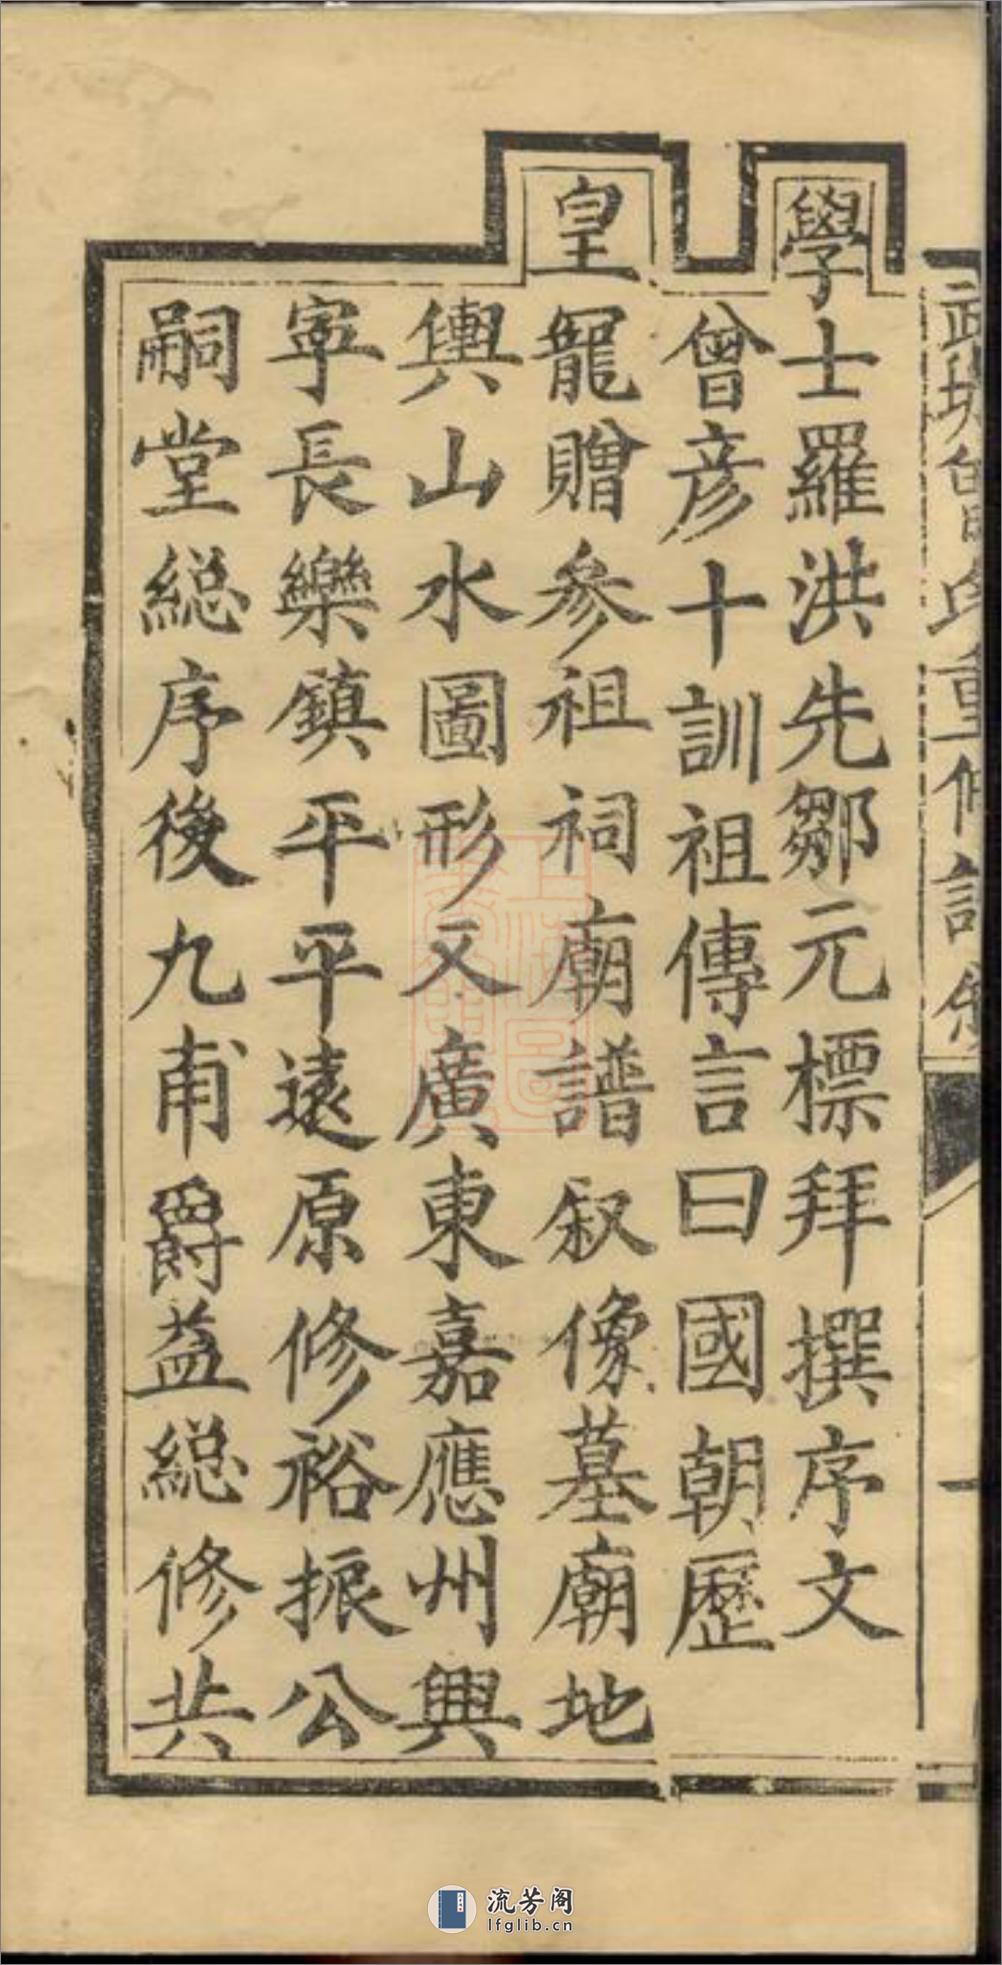 武城曾氏重修
學士羅洪先鄒元標拜撰序文
曾彦十訓祖傳言曰國朝歷
皇寵贈參祖祠廟譜叙像墓廟地
輿山水圖形又廣東嘉應州興
寜長樂鎮平平遠原修裕振公
嗣堂総序後九甫爵益総修共
流芳阁
lfglib.cn